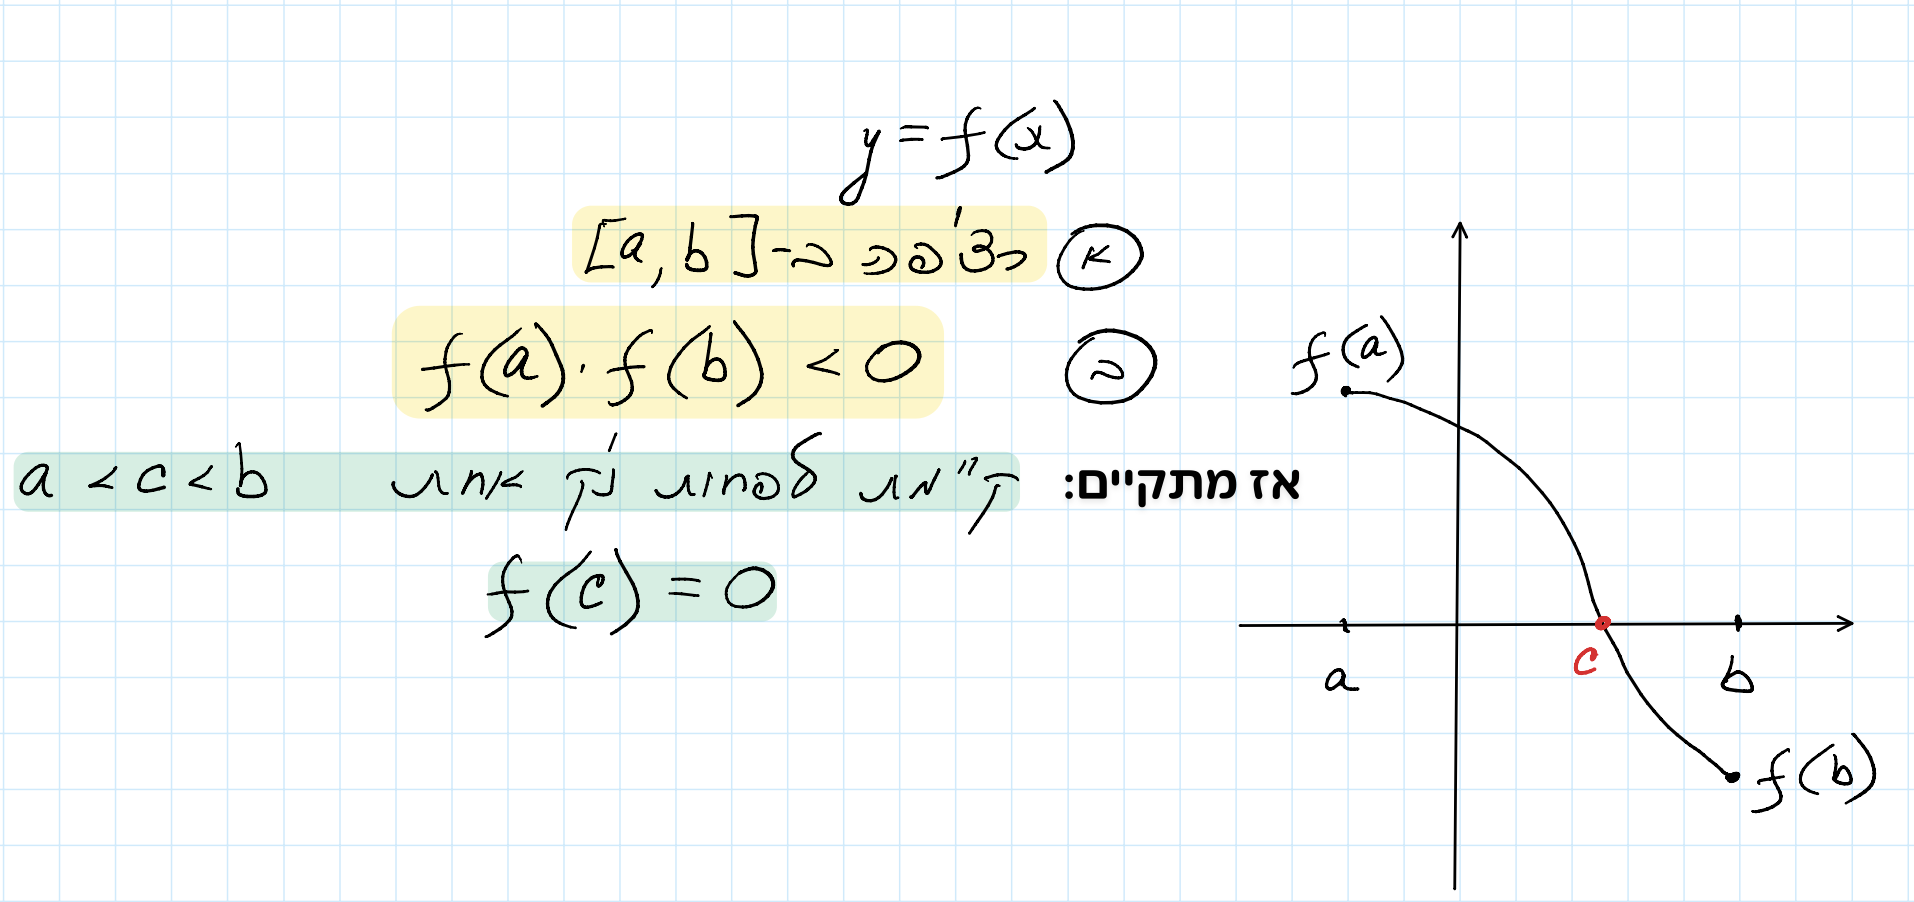 y = f(x)
א רציפה ב-[a, b]
ב f(a) · f(b) < 0
אז מתקיים: קיימת לפחות נק' אחת a < c < b
f(c) = 0
f(a)
a
c
b
f(b)